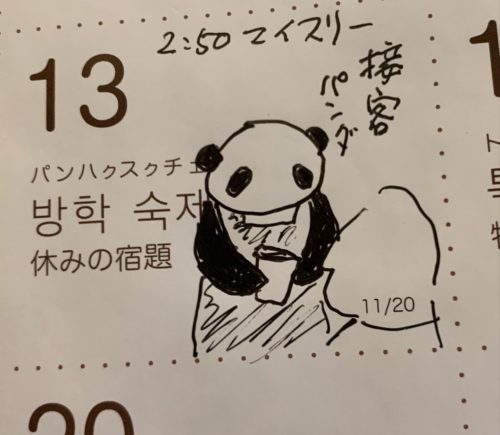 2:50 マイスリー
13
接客
パンダ
パンハㇰスㇰチェ
방학 숙제
休みの宿題
11/20
20